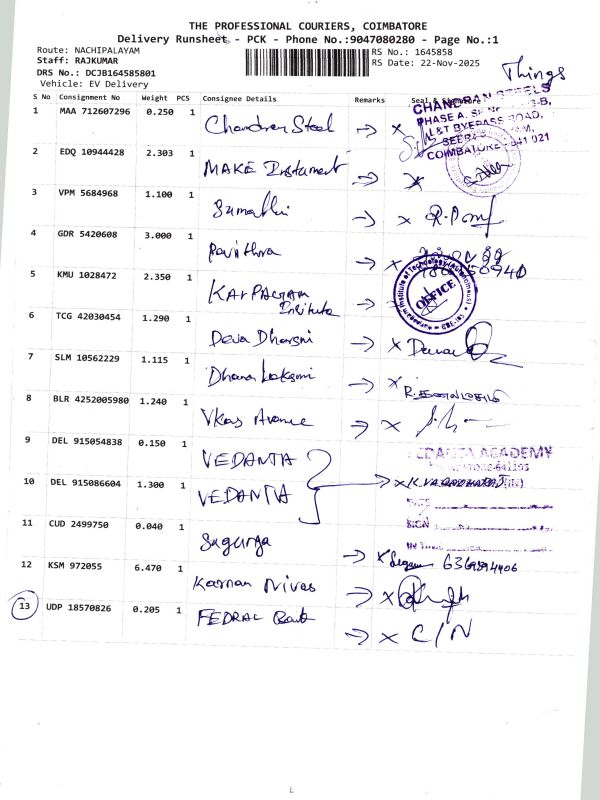 THE PROFESSIONAL COURIERS, COIMBATORE
Delivery Runsheet - PCK - Phone No.:9047080280 - Page No.:1
Route: NACHIPALAYAM
RS No.: 1645858
Staff: RAJKUMAR
RS Date: 22-Nov-2025
DRS No.: DCJB164585801
Vehicle: EV Delivery
Things
S No Consignment No Weight PCS Consignee Details Remarks Seal & Signature
CHANDRAN STEELS
PHASE A,
L&T BYEPASS ROAD,
COIMBATORE - 641 021
1 MAA 712607296 0.250 1 Chandran Steel → x
2 EDQ 10944428 2.303 1 MAKE Instument → x
3 VPM 5684968 1.100 1 Sumathi → x
4 GDR 5420608 3.000 1 Pavithra → x
5 KMU 1028472 2.350 1 KARPAGAM Institute →
OFFICE
6 TCG 42030454 1.290 1 Deva Dharsni → x
7 SLM 10562229 1.115 1 Dhana Laksmi → x
8 BLR 4252005980 1.240 1 Vkas Avanue → x
9 DEL 915054838 0.150 1 VEDANTA
VEDANTA ACADEMY
10 DEL 915086604 1.300 1 VEDANTA → x
DATE
SIGN
11 CUD 2499750 0.040 1 Suguna → x
12 KSM 972055 6.470 1 Kannan Nivas → x
13 UDP 18570826 0.205 1 FEDRAL Bank → x C/N